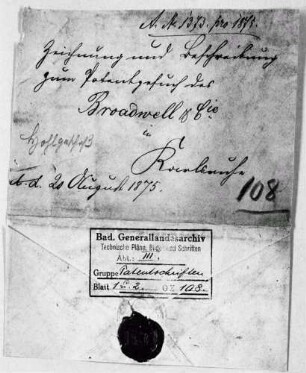 A. N. 1373. pro 1875.
Zeichnung und Beschreibung
zum Patentgesuch des
Broadwell & Cie
in
Karlsruhe
Hohlgeschoß
d. d. 20 August 1875.
108
Bad. Generallandesarchiv
Technische Pläne, und Schriften
Abt.: III.
Gruppe Patentschriften
Blatt 1 2 108.